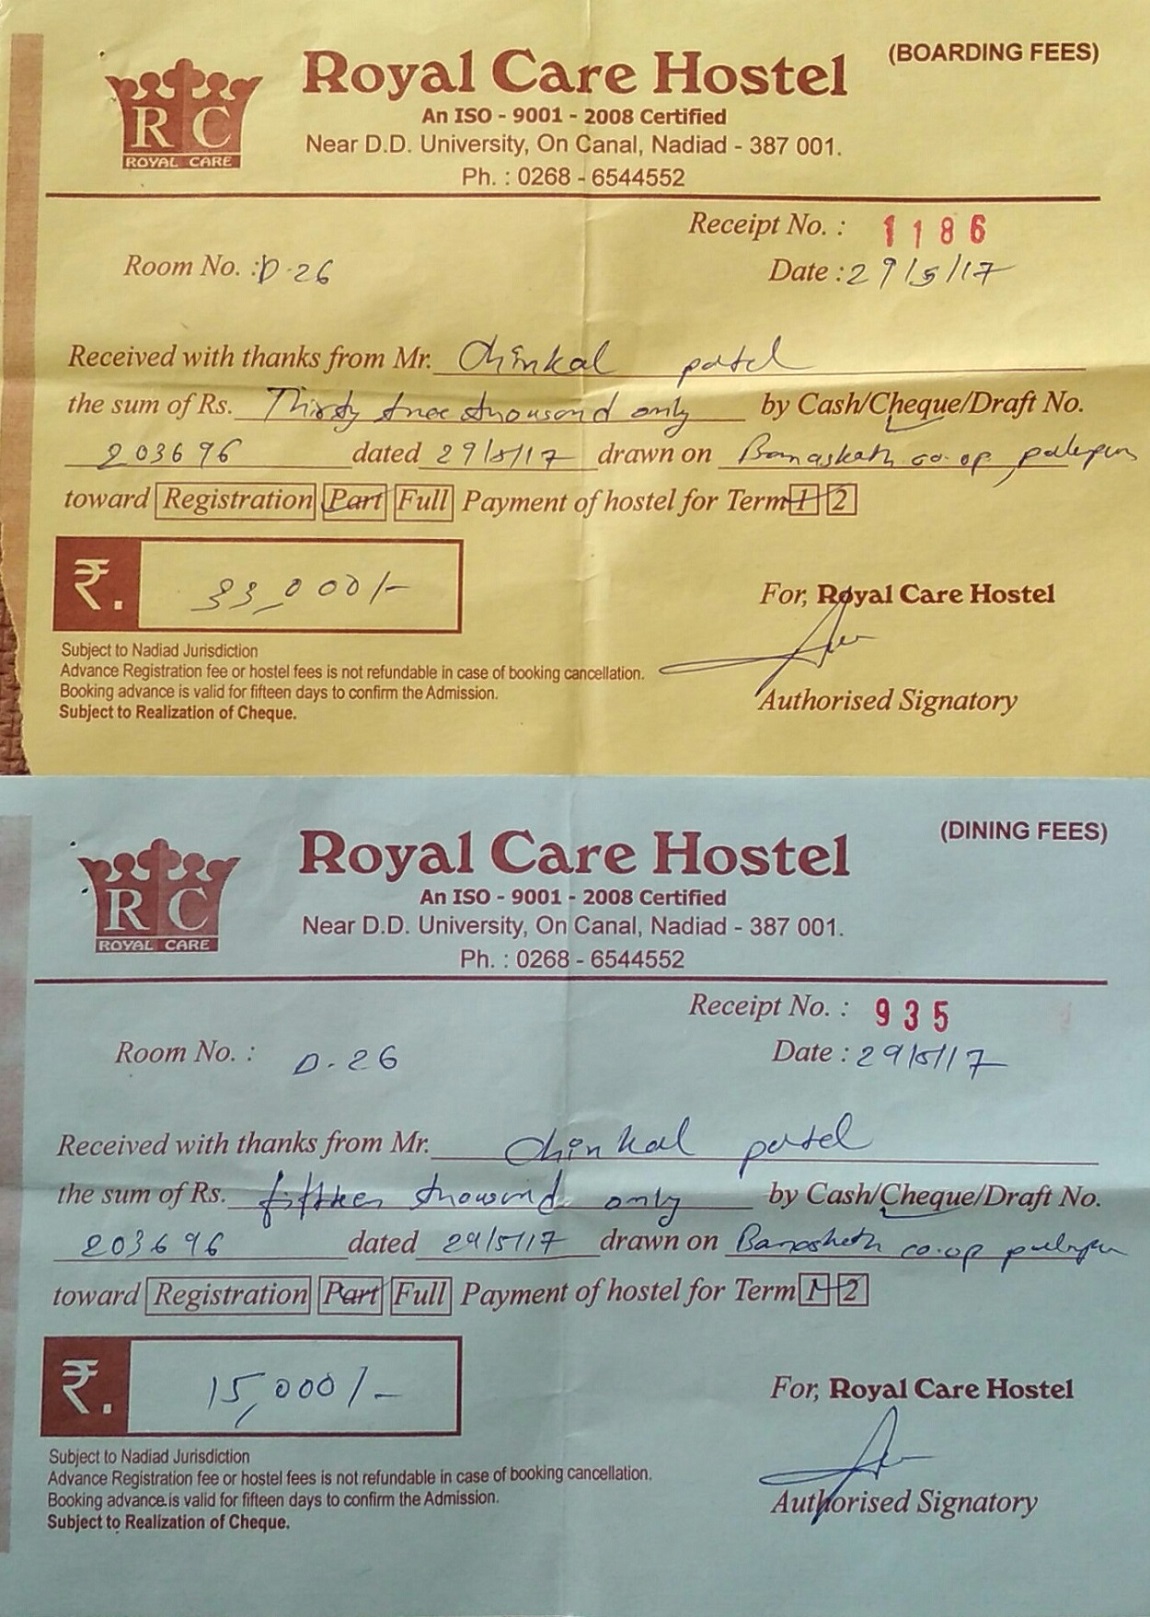 (BOARDING FEES)
RC
ROYAL CARE
Royal Care Hostel
An ISO - 9001 - 2008 Certified
Near D.D. University, On Canal, Nadiad - 387 001.
Ph. : 0268 - 6544552
Receipt No. : 1186
Room No. : D-26
Date : 29/5/17
Received with thanks from Mr. Chinkal patel
the sum of Rs. Thirty tree thousand only by Cash/Cheque/Draft No.
203696 dated 29/5/17 drawn on Banaskath co.op palepur
toward Registration Part Full Payment of hostel for Term 1 2
₹. 33,000/-
For, Royal Care Hostel
Subject to Nadiad Jurisdiction
Advance Registration fee or hostel fees is not refundable in case of booking cancellation.
Booking advance is valid for fifteen days to confirm the Admission.
Subject to Realization of Cheque.
Authorised Signatory
(DINING FEES)
RC
ROYAL CARE
Royal Care Hostel
An ISO - 9001 - 2008 Certified
Near D.D. University, On Canal, Nadiad - 387 001.
Ph. : 0268 - 6544552
Receipt No. : 935
Room No. : D-26
Date : 29/5/17
Received with thanks from Mr. Chinkal patel
the sum of Rs. fifteen thousand only by Cash/Cheque/Draft No.
203696 dated 29/5/17 drawn on Banaskath co.op
toward Registration Part Full Payment of hostel for Term 1 2
₹. 15,000/-
For, Royal Care Hostel
Subject to Nadiad Jurisdiction
Advance Registration fee or hostel fees is not refundable in case of booking cancellation.
Booking advance is valid for fifteen days to confirm the Admission.
Subject to Realization of Cheque.
Authorised Signatory